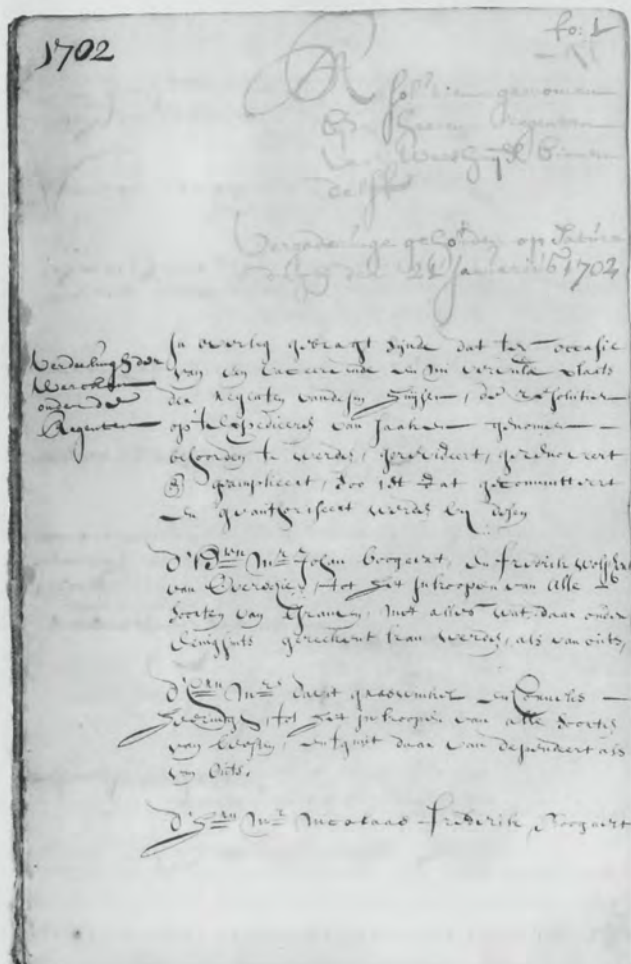 1702
fo: 1
Resolutien genomen
By Heeren Regenten
van t Weeshuijs binnen
Delft
Vergaderinge gehoúden op Saturdagh
den 21 Januarij 1702
Verdeelingh der
Wercken
onder de
Regenten
In overleg gebragt sijnde dat ter occasie
van een vaceerende en nu vervulde plaats
der Regenten van desen huijsen, de resolutien
op 't expedieeren van saaken genomen
behoorden te werden gerevideert, gerenoveert
en geamplieert, soo ist dat gecommitteert
en geauthoriseert werden bij desen
d'H:ren M:rs Johan Boogaert, en Fredrik
van Overschie, tot het inkoopen van alle
soorten van Granen, met alles wat daar onder
eenighsints gerekent kan werden, als van outs,
d'H:ren M:rs Davit en Cornelis
tot het inkoopen van alle soorten
van beesten, en tgunt daar van dependeert als
van outs.
d'H:ren M:r Nicolaas Frederik Boogaert